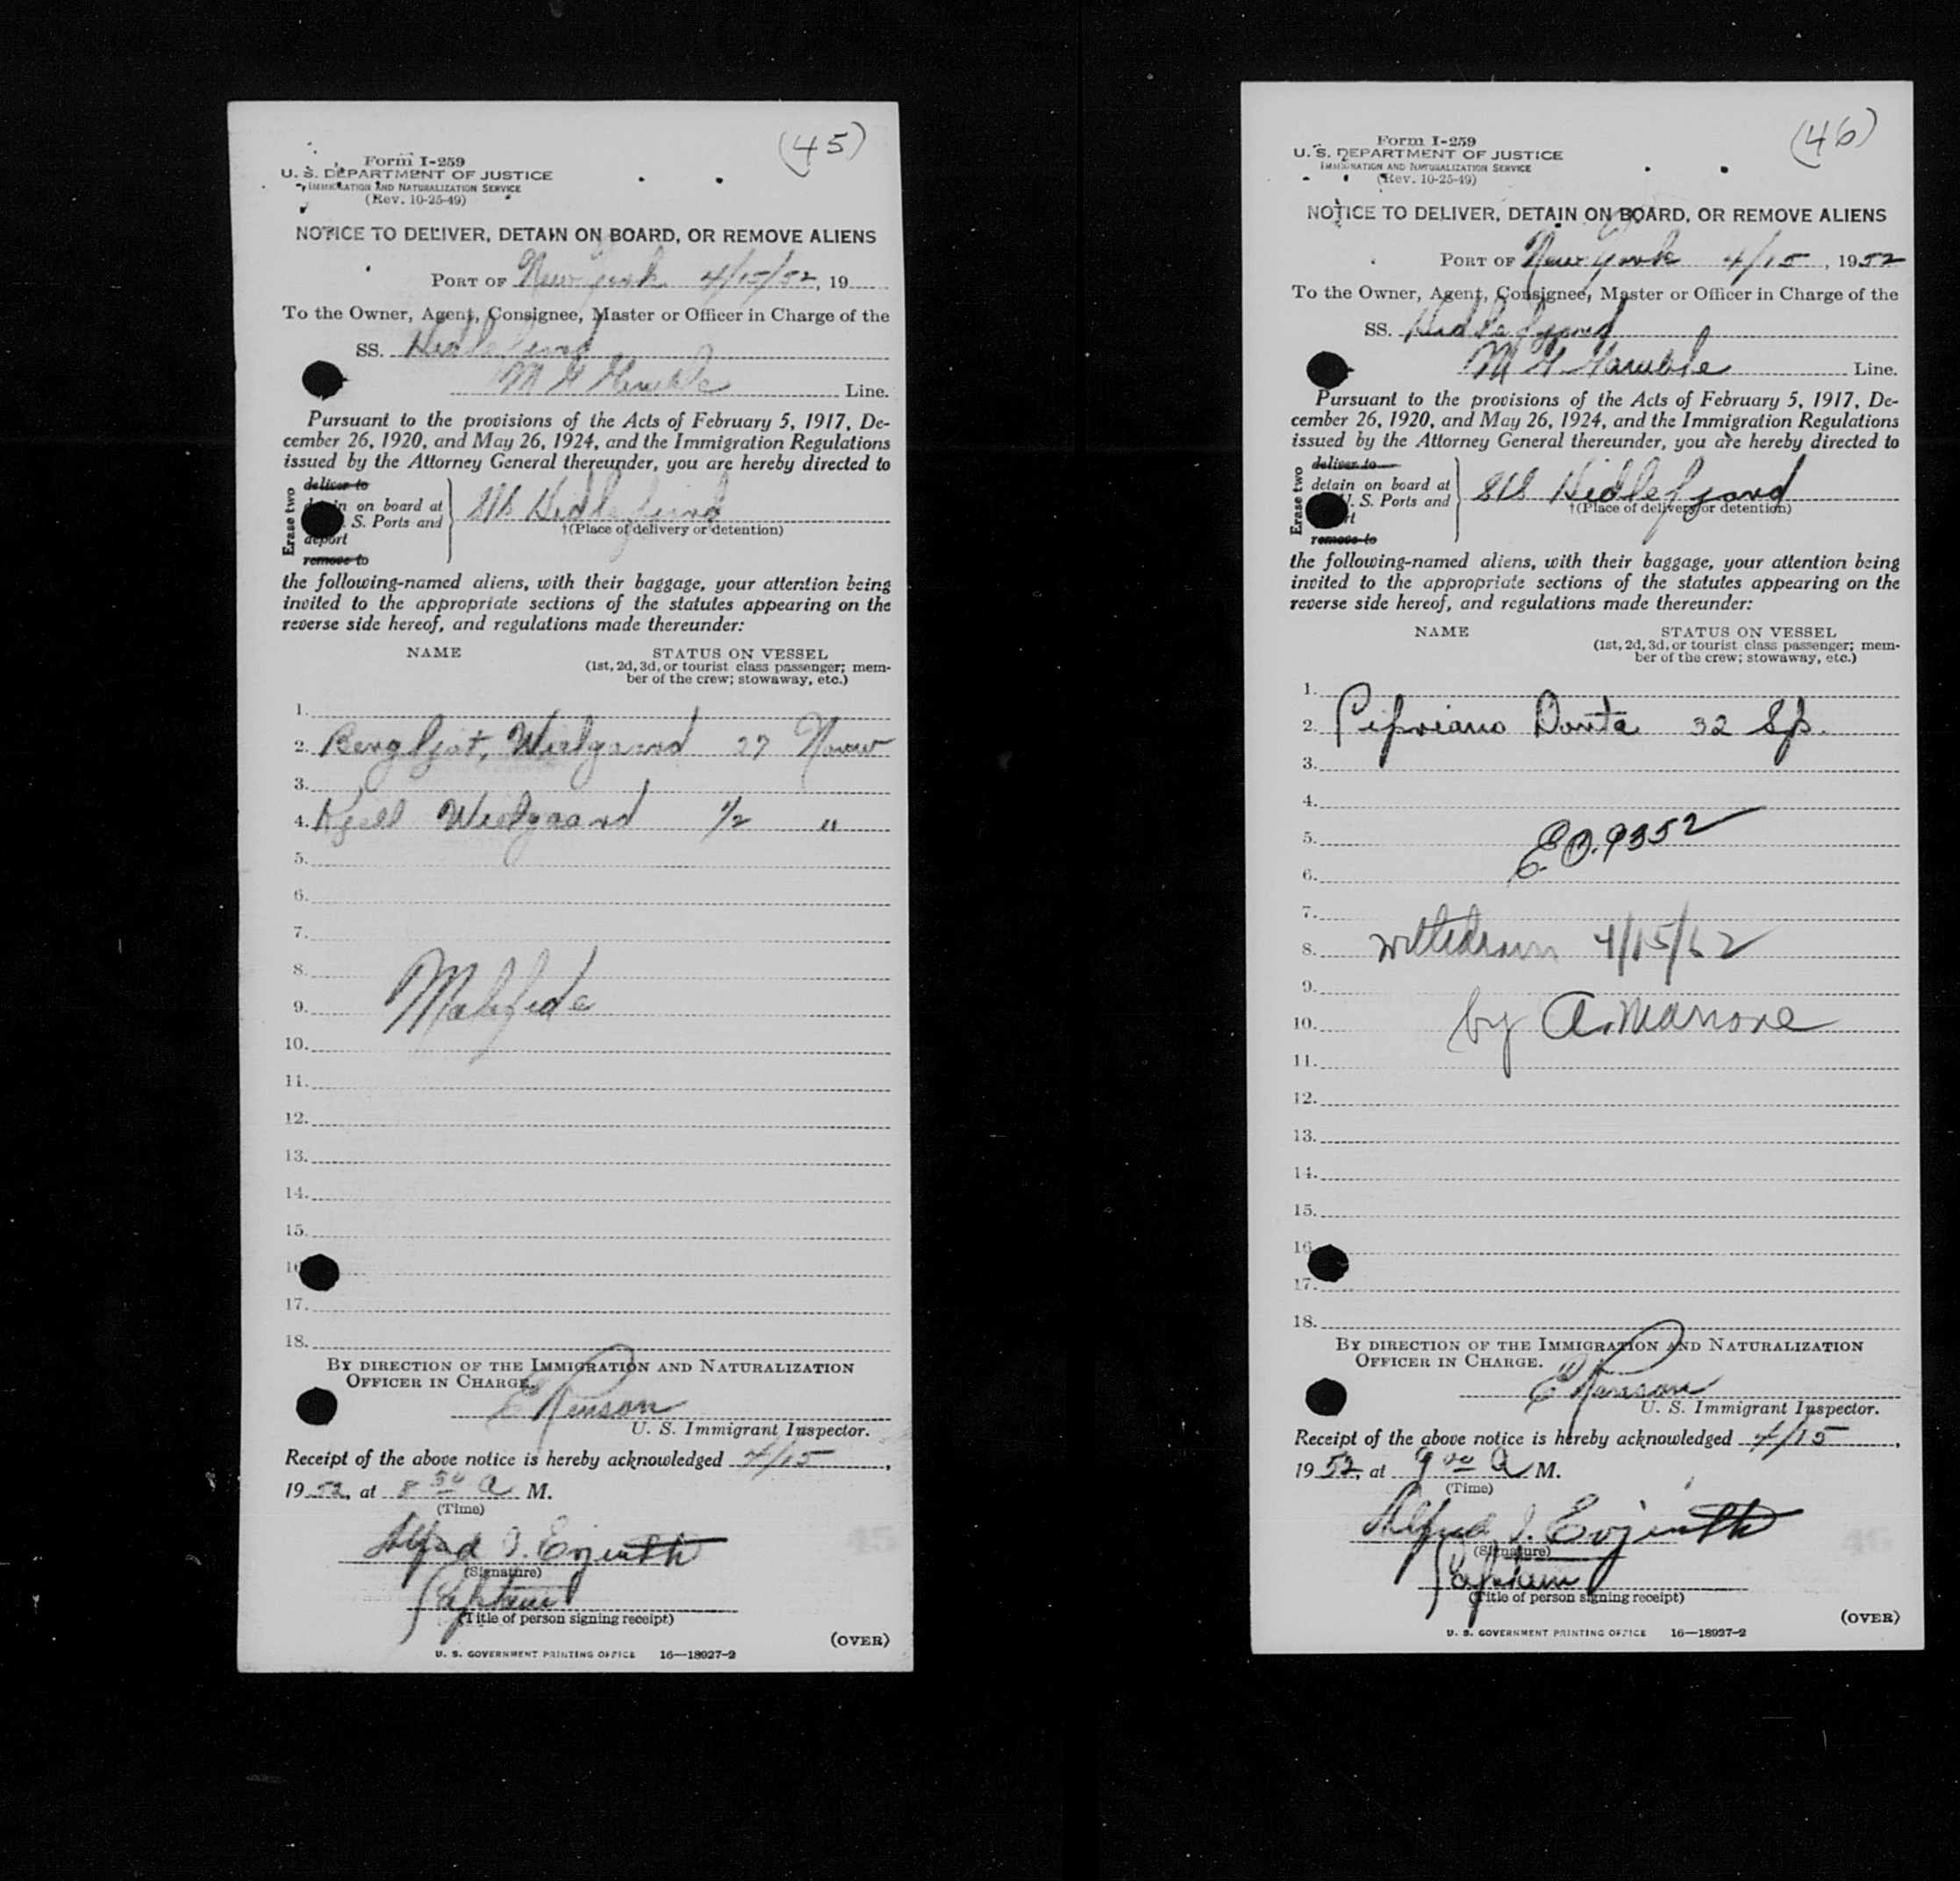 (45)
Form I-259
U. S. DEPARTMENT OF JUSTICE
IMMIGRATION AND NATURALIZATION SERVICE
(Rev. 10-25-49)
NOTICE TO DELIVER, DETAIN ON BOARD, OR REMOVE ALIENS
PORT OF New York 4/15/52, 19
To the Owner, Agent, Consignee, Master or Officer in Charge of the
SS. Hidlefjord
M G Line.
Pursuant to the provisions of the Acts of February 5, 1917, De-
cember 26, 1920, and May 26, 1924, and the Immigration Regulations
issued by the Attorney General thereunder, you are hereby directed to
Erase two
deliver to
on board at
S. Ports and
deport
remove to
Hidlefjord
†(Place of delivery or detention)
the following-named aliens, with their baggage, your attention being
invited to the appropriate sections of the statutes appearing on the
reverse side hereof, and regulations made thereunder:
NAME STATUS ON VESSEL
(1st, 2d, 3d, or tourist class passenger; mem-
ber of the crew; stowaway, etc.)
1.
2. Bergljot, Wielgaard 27 Norw
3.
4. Kjell Wielgaard 1/2 "
5.
6.
7.
8.
9. Malafide
10.
11.
12.
13.
14.
15.
16
17.
18.
BY DIRECTION OF THE IMMIGRATION AND NATURALIZATION
OFFICER IN CHARGE.
E
U. S. Immigrant Inspector.
Receipt of the above notice is hereby acknowledged 4/15,
19 52, at 8 30 A M.
(Time)
Alfred
(Signature)
Captain
(Title of person signing receipt)
45
(OVER)
U. S. GOVERNMENT PRINTING OFFICE 16—18927-2
(46)
Form I-259
U. S. DEPARTMENT OF JUSTICE
IMMIGRATION AND NATURALIZATION SERVICE
(Rev. 10-25-49)
NOTICE TO DELIVER, DETAIN ON BOARD, OR REMOVE ALIENS
PORT OF New York 4/15, 1952
To the Owner, Agent, Consignee, Master or Officer in Charge of the
SS. Hidlefjord
M G Gamble Line.
Pursuant to the provisions of the Acts of February 5, 1917, De-
cember 26, 1920, and May 26, 1924, and the Immigration Regulations
issued by the Attorney General thereunder, you are hereby directed to
Erase two
deliver to
detain on board at
U. S. Ports and
remove to
Hidlefjord
†(Place of delivery or detention)
the following-named aliens, with their baggage, your attention being
invited to the appropriate sections of the statutes appearing on the
reverse side hereof, and regulations made thereunder:
NAME STATUS ON VESSEL
(1st, 2d, 3d, or tourist class passenger; mem-
ber of the crew; stowaway, etc.)
1.
2. Cipriano Donta 32 Sp.
3.
4.
5. EO. 9352
6.
7.
8. withdrawn 4/15/52
9.
10. by A. Marrone
11.
12.
13.
14.
15.
16.
17.
18.
BY DIRECTION OF THE IMMIGRATION AND NATURALIZATION
OFFICER IN CHARGE.
E
U. S. Immigrant Inspector.
Receipt of the above notice is hereby acknowledged 4/15,
19 52, at 9 00 A M.
(Time)
Alfred
(Signature)
Captain
(Title of person signing receipt)
46
(OVER)
U. S. GOVERNMENT PRINTING OFFICE 16—18927-2